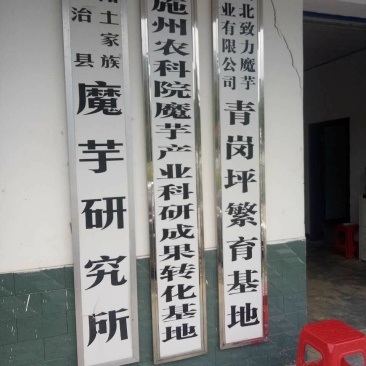 土家族
治县
魔芋研究所
施州农科院魔芋产业科研成果转化基地
北致力魔芋
业有限公司
青岗坪繁育基地